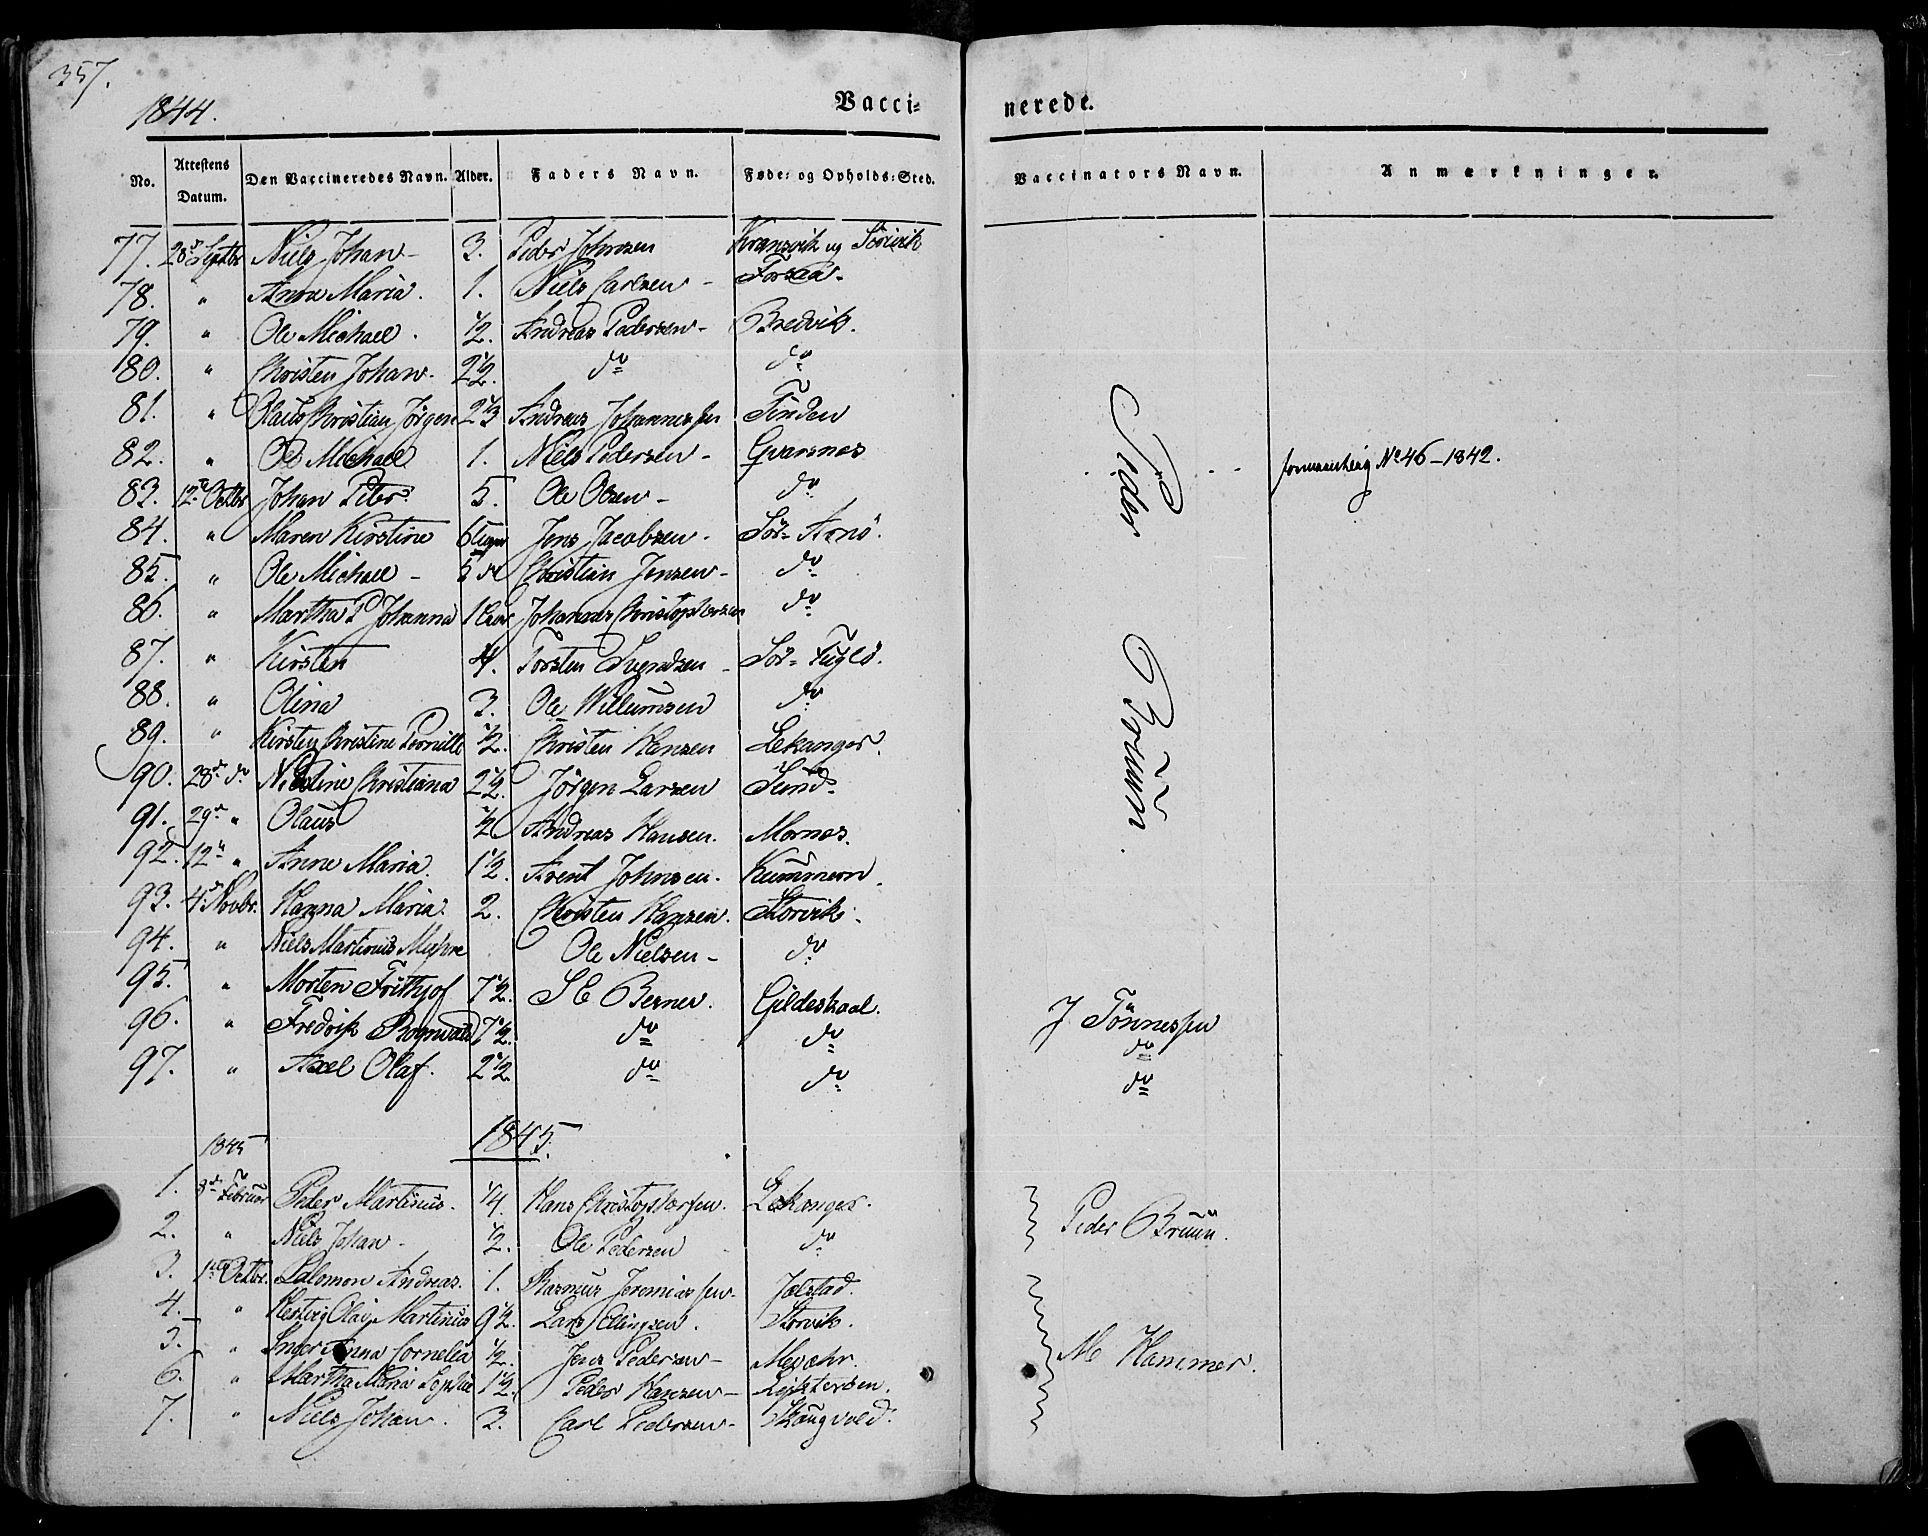 357.
1844.
Vacci-
nerede.
No. Attestens Datum. Den Vaccineredes Navn. Alder. Faders Navn. Føde- og Opholds-Sted. Vaccinators Navn. Anmærkninger.
77. 28de Septbr Niels Johan 3. Peder Johnsen og Sørvik
78. " Anna Maria. 1. Niels Carlsen - Forsaa.
79. " Ole Michael. 1/2. Andreas Pedersen - Bredvik.
80. " Christen Johan. 2 1/2. do do
81. " Olaus Christian Jørgen 2 1/3 Andreas Johannessen Finden
82. " Ole Michael 1. Niels Pedersen - Gvarsnes No 46-1842.
83. 12te Octbr Johan Peter 5. Ole Olsen - do
84. " Maren Kirstine 6 Uger Jens Jacobsen. Sör-Arnö.
85. " Ole Michael - 5 do Christian Jensen - do
86. " Martha P Johanna 1 Aar Johannes Christophersen do
87. " Kirsten 4. Torsten Svendsen - Sör-Fuglö.
88. " Olina 3. Ole Willumsen do
89. " Kirsten Christine Pernille 1/2. Christen Hansen Lekanger.
90. 28de do Nicoline Christiana 2 1/2. Jörgen Larsen Sund.
91. 29de " Olaus 1/2 Andreas Hansen. Mornes.
92. 12te " Anne Maria. 1 1/2. Arent Johnsen. Kummern.
93. 4de Novbr. Hanna Maria. 2. Christen Hansen. Storvik.
94. " Niels Martinus Ole Nielsen - do
95. " Morten Frithjof 7 1/2. S C Berner. Gildeskaal. J Tönnessen
96. " Fredrik Rognvald 7 1/2. do do do
97. " Axel Olaf. 2 1/2. do do do
Peder Bruun.
1845.
1845
1. 3de Februar Peder Martinus. 1/4. Hans Christophersen. Lekanger.
2. " Niels Johan. 1/2. Ole Pedersen do Peder Bruun.
3. 1ste Octbr. Salomon Andreas. 1. Rasmus Jeremiassen. Jælstad.
4. " Hertvig Olai Martinus 9 1/2. Lars Ellingsen. Storvik.
5. " Inger Anna Cornelia 1/2. Jens Pedersen - Mevær. M Hammer.
6. " Martha Maria Sophie 1 1/2. Peder Hansen -
7. " Niels Johan. 3. Carl Pedersen - Skaugvold.